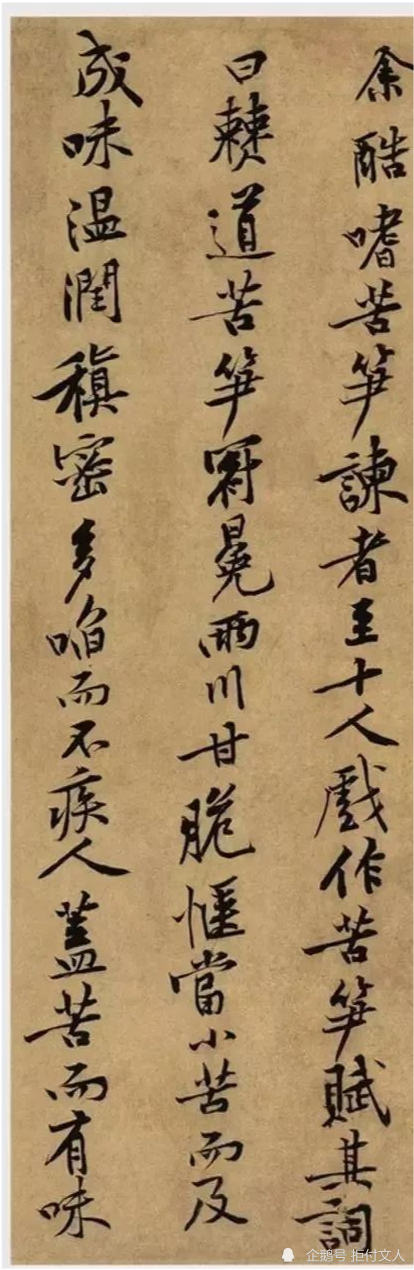 余酷嗜苦笋諫者至十人戲作苦笋賦其詞
曰僰道苦笋冠冕兩川甘脆愜當小苦而及
成味温潤稹密多啗而不疾人蓋苦而有味
企鹅号 拒付文人